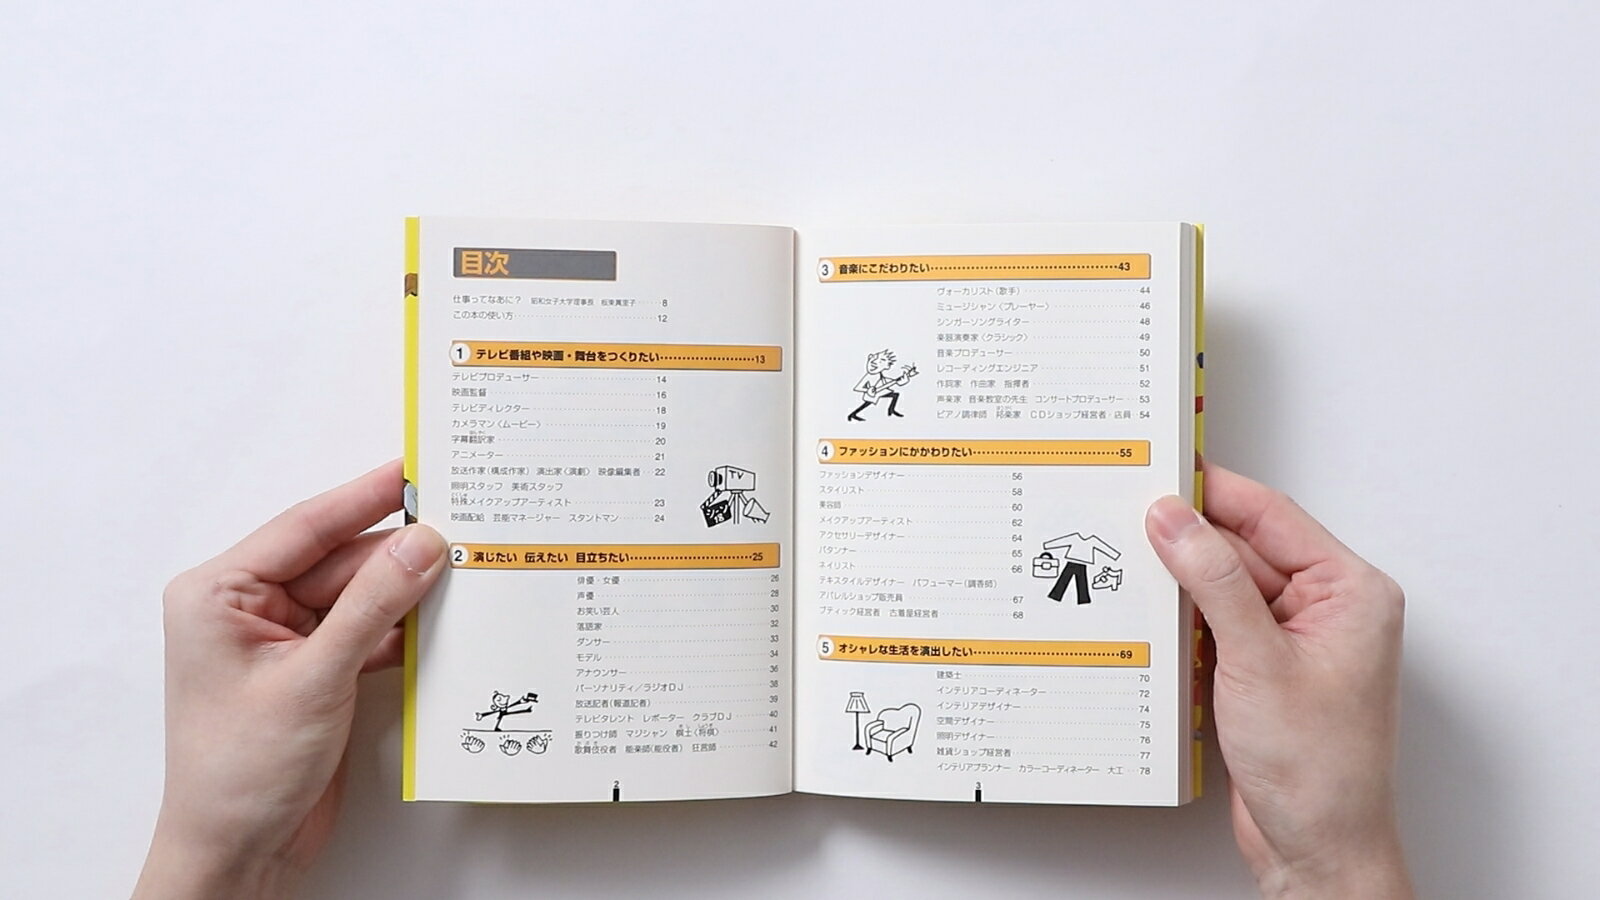 目次
仕事ってなあに？ 昭和女子大学理事長 坂東眞理子……8
この本の使い方……12
1 テレビ番組や映画・舞台をつくりたい……13
テレビプロデューサー……14
映画監督……16
テレビディレクター……18
カメラマン〈ムービー〉……19
字幕翻訳家……20
アニメーター……21
放送作家（構成作家） 演出家〈演劇〉 映像編集者……22
照明スタッフ 美術スタッフ
特殊メイクアップアーティスト……23
映画配給 芸能マネージャー スタントマン……24
TV
シーン
18
2 演じたい 伝えたい 目立ちたい……25
俳優・女優……26
声優……28
お笑い芸人……30
落語家……32
ダンサー……33
モデル……34
アナウンサー……36
パーソナリティ／ラジオDJ……38
放送記者（報道記者）……39
テレビタレント レポーター クラブDJ……40
振りつけ師 マジシャン 棋士〈将棋〉……41
歌舞伎役者 能楽師（能役者） 狂言師……42
2
3 音楽にこだわりたい……43
ヴォーカリスト（歌手）……44
ミュージシャン〈プレーヤー〉……46
シンガーソングライター……48
楽器演奏家〈クラシック〉……49
音楽プロデューサー……50
レコーディングエンジニア……51
作詞家 作曲家 指揮者……52
声楽家 音楽教室の先生 コンサートプロデューサー……53
ピアノ調律師 邦楽家 CDショップ経営者・店員……54
4 ファッションにかかわりたい……55
ファッションデザイナー……56
スタイリスト……58
美容師……60
メイクアップアーティスト……62
アクセサリーデザイナー……64
パタンナー……65
ネイリスト……66
テキスタイルデザイナー パフューマー（調香師）
アパレルショップ販売員……67
ブティック経営者 古着屋経営者……68
5 オシャレな生活を演出したい……69
建築士……70
インテリアコーディネーター……72
インテリアデザイナー……74
空間デザイナー……75
照明デザイナー……76
雑貨ショップ経営者……77
インテリアプランナー カラーコーディネーター 大工……78
3